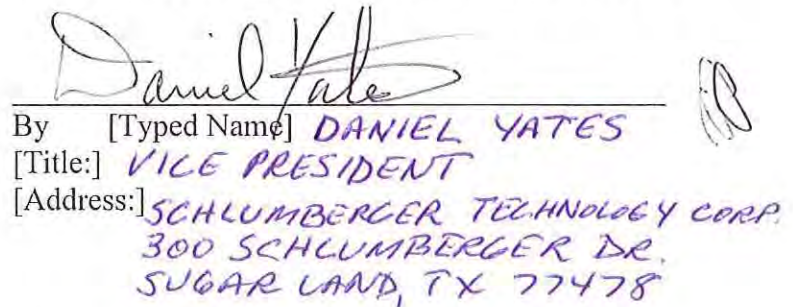 Daniel Yates
By [Typed Name] DANIEL YATES
[Title:] VICE PRESIDENT
[Address:] SCHLUMBERGER TECHNOLOGY CORP.
300 SCHLUMBERGER DR.
SUGAR LAND, TX 77478